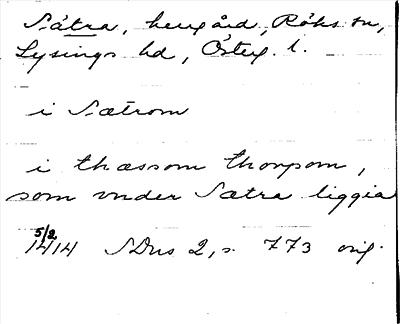 Sätra, herrgård, Röks sn,
Lysings hd, Österg. l.
i Sætrom
i thæssom thorpom,
som vnder Sætra liggia
5/2
1414 SDns 2, s. 773 orig.